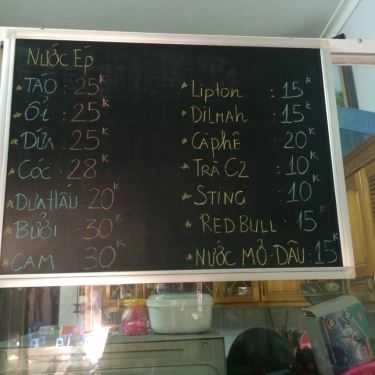 NƯỚC ÉP
* TÁO : 25K
* ỔI : 25K
* DỨA : 25K
* CÓC : 28K
* DƯA HẤU 20K
* BƯỞI : 30K
* CAM 30K
* LIPTON : 15K
* DILMAH : 15K
* CÀ PHÊ 20K
* TRÀ C2 : 10K
* STING - 10K
* REDBULL - 15K
* NƯỚC MƠ-DÂU : 15K